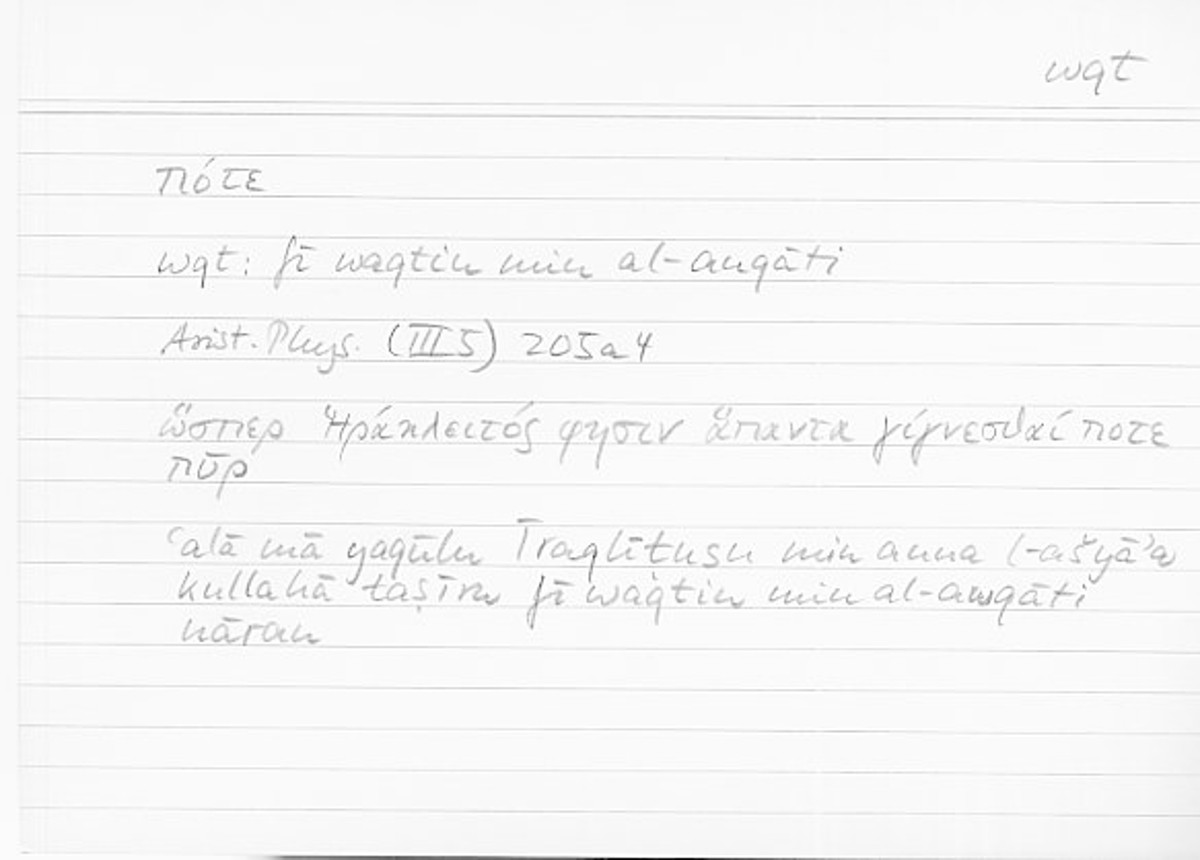 wqt
πότε
wqt: fī waqtin min al-auqāti
Arist. Phys. (III 5) 205a4
ὥσπερ Ἡράκλειτός φησιν ἅπαντα γίγνεσθαί ποτε
πῦρ
ʿalā mā yaqūlu Īraqlīṭuṣu min anna l-ašyāʾa
kullahā taṣīru fī waqtin min al-awqāti
nāran